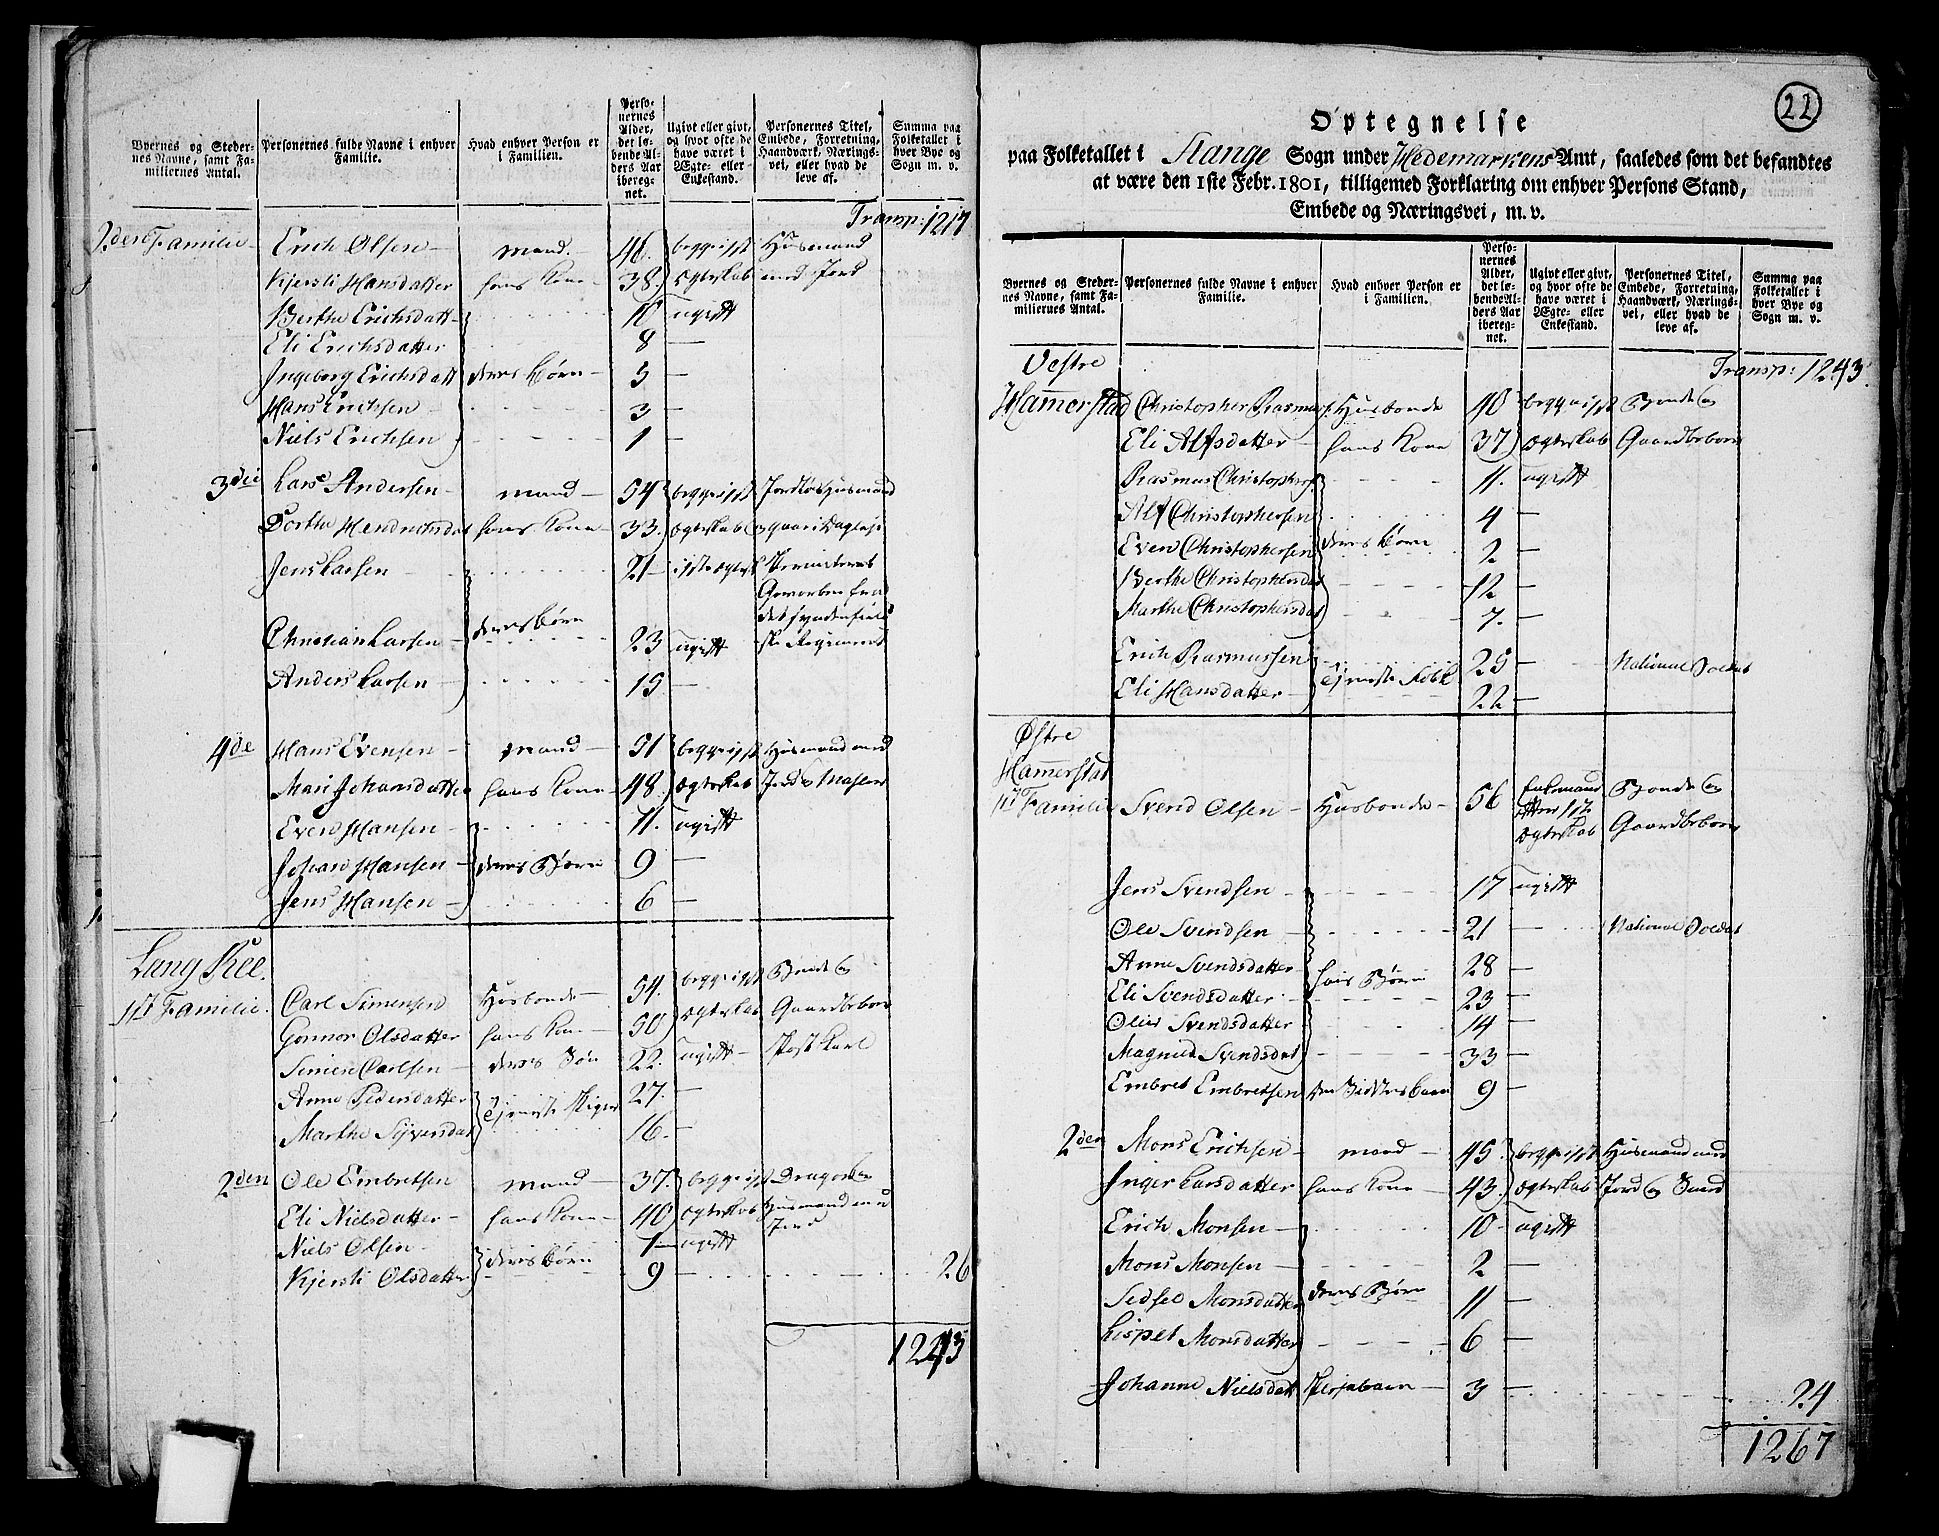 Byernes og Stedernes Navne, samt Familiernes Antal. | Personernes fulde Navne i enhver Familie. | Hvad enhver Person er i Familien. | Personernes Alder, det løbende Alders Aar iberegnet. | Ugivt eller givt, og hvor ofte de have været i Ægte- eller Enkestand. | Personernes Titel, Embede, Forretning, Haandværk, Næringsvei, eller hvad de leve af. | Summa paa Folketallet i hver Bye og Sogn m. v.
Transp: 1217
2den Familie Erich Olsen mand 46. begge i 1ste Huusmand
Kjersti Hansdatter hans Kone 38. ægteskab med Jord
Berthe Erichsdatt 10 ugivtt
Eli Erichsdatter 8 —
Ingeborg Erichsdatt deres Børn 5 —
Hans Erichsen 3 —
Niels Erichsen 1 —
3die Lars Andersen mand 54 begge i 1ste Jordløs Huusmand
Dorthe Hendrichsdat hans Kone 33. ægteskab
Jens Larsen 21 i 1ste ægtesk
Christian Larsen deres børn 23 ugivtt
Anders Larsen 15 —
4de Hans Evensen mand 51 begge i 1ste Huusmand med
Mari Johansdatter hans Kone 48. ægteskab
Even Hansen 11. ugivtt
Johan Hansen deres Børn 9 —
Jens Hansen 6 —
Lang Kee.
1st Familie. Carl Simensen Husbonde 54. begge i 1st Bonde og
Gonnor Olsdatter hans Kone 50 ægteskab Gaardbeboer
Simen Carlsen deres Søn 22. ugivtt Postkarl
Anne Pedersdatter 27. —
Marthe Syversdat 16. —
2den Ole Embretsen mand 37. begge i 1st Dragon og
Eli Nielsdatter hans Kone 40 ægteskab Huusmand med
Niels Olsen 1 ugivtt Jord
Kjersti Olsdatter deres børn 9 — 26
1243
22
Optegnelse
paa Folketallet i Stange Sogn under Hedemarkens Amt, saaledes som det befandtes
at være den 1ste Febr. 1801, tilligemed Forklaring om enhver Persons Stand,
Embede og Næringsvei, m. v.
Byernes og Stedernes Navne, samt Familiernes Antal. | Personernes fulde Navne i enhver Familie. | Hvad enhver Person er i Familien. | Personernes Alder, det løbende Alders Aar iberegnet. | Ugivt eller givt, og hvor ofte de have været i Ægte- eller Enkestand. | Personernes Titel, Embede, Forretning, Haandværk, Næringsvei, eller hvad de leve af. | Summa paa Folketallet i hver Bye og Sogn m. v.
Vestre Transp: 1243.
Hamerstad Christopher Rasmus. Husbonde 40 begge i 1st Bonde og
Eli Alfsdatter hans Kone 37 ægteskab Gaardbeboer
Rasmus Christophers. 11. ugivtt
Alf Christophersen 4 —
Even Christophersen deres børn 2 —
Berthe Christophersdat 12 —
Marthe Christophersdat 7. —
Erich Rasmussen 25 — National Soldat
Eli Hansdatter 22 —
Østre
Hamerstad
1st Familie Svend Olsen Husbonde 56 Enkemand Bonde og
ægteskab Gaardbeboer
Jens Svendsen 17 ugivtt
Ole Svendsen 21 — National Soldat
Anne Svendsdatter 28 —
Eli Svendsdatter hans Børn 23 —
Olea Svendsdatter 14 —
Magnild Svendsdat 33 —
Embret Embretsen 9 —
2den Mons Erichsen mand 45. begge i 1st Huusmand med
Inger Larsdatter hans Kone 43. ægteskab Jord og
Erich Monsen 10 ugivtt
Mons Monsen 2 —
Sedsel Monsdatter deres Børn 11 —
Lispet Monsdatter 6 —
Johanne Nielsdatt 3 — 24
1267